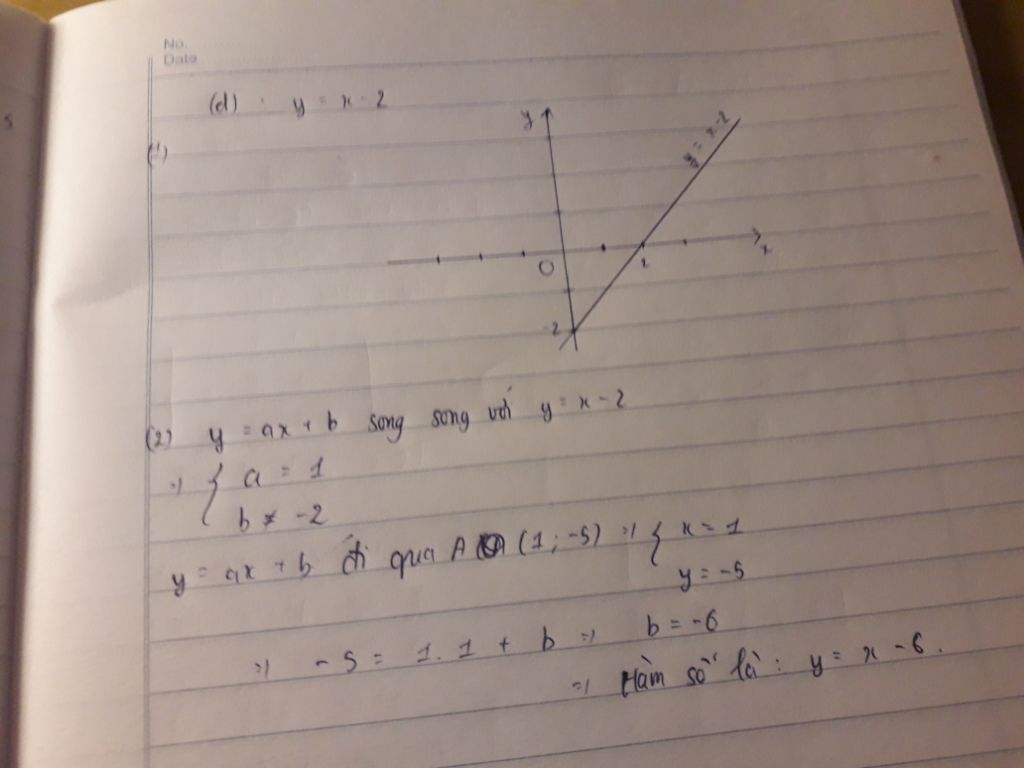 No.
Date
s
(d) : y = x - 2
(1)
y
y = x - 2
O
2
x
-2
(2) y = ax + b song song với y = x - 2
=> { a = 1
b ≠ -2
y = ax + b đi qua A (1; -5) => { x = 1
y = -5
=> -5 = 1.1 + b => b = -6
=> Hàm số là : y = x - 6.